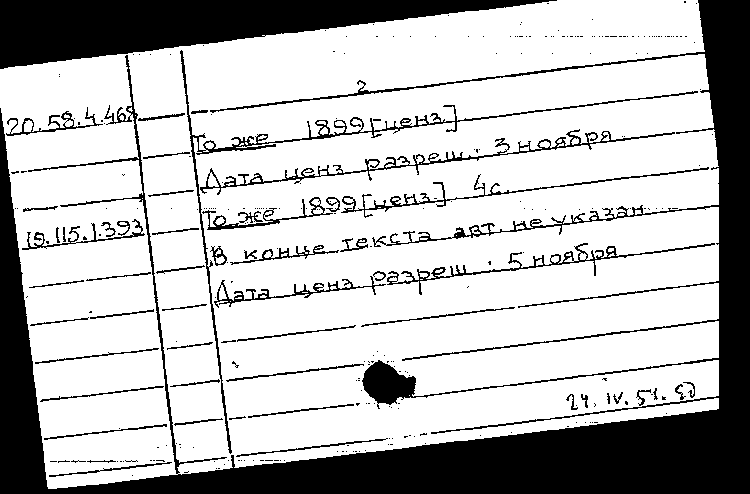 2
20.58.4.468
То же 1899[ценз.]
Дата ценз разреш.: 3 ноября
19.115.1.393 То же 1899[ценз.] 4с.
В конце текста авт. не указан
Дата ценз разреш.: 5 ноября
24.IV.54.